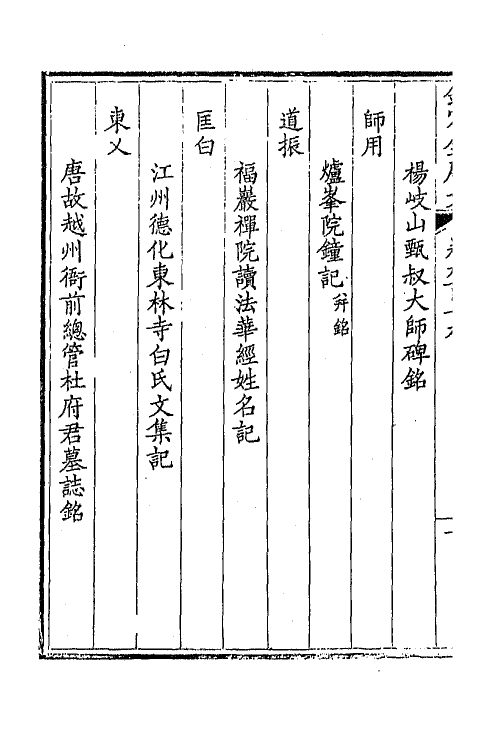 楊岐山甄叔大師碑銘
師用
爐峯院鐘記 幷銘
道振
福巖禪院讀法華經姓名記
匡白
江州德化東林寺白氏文集記
東乂
唐故越州衙前總管杜府君墓誌銘